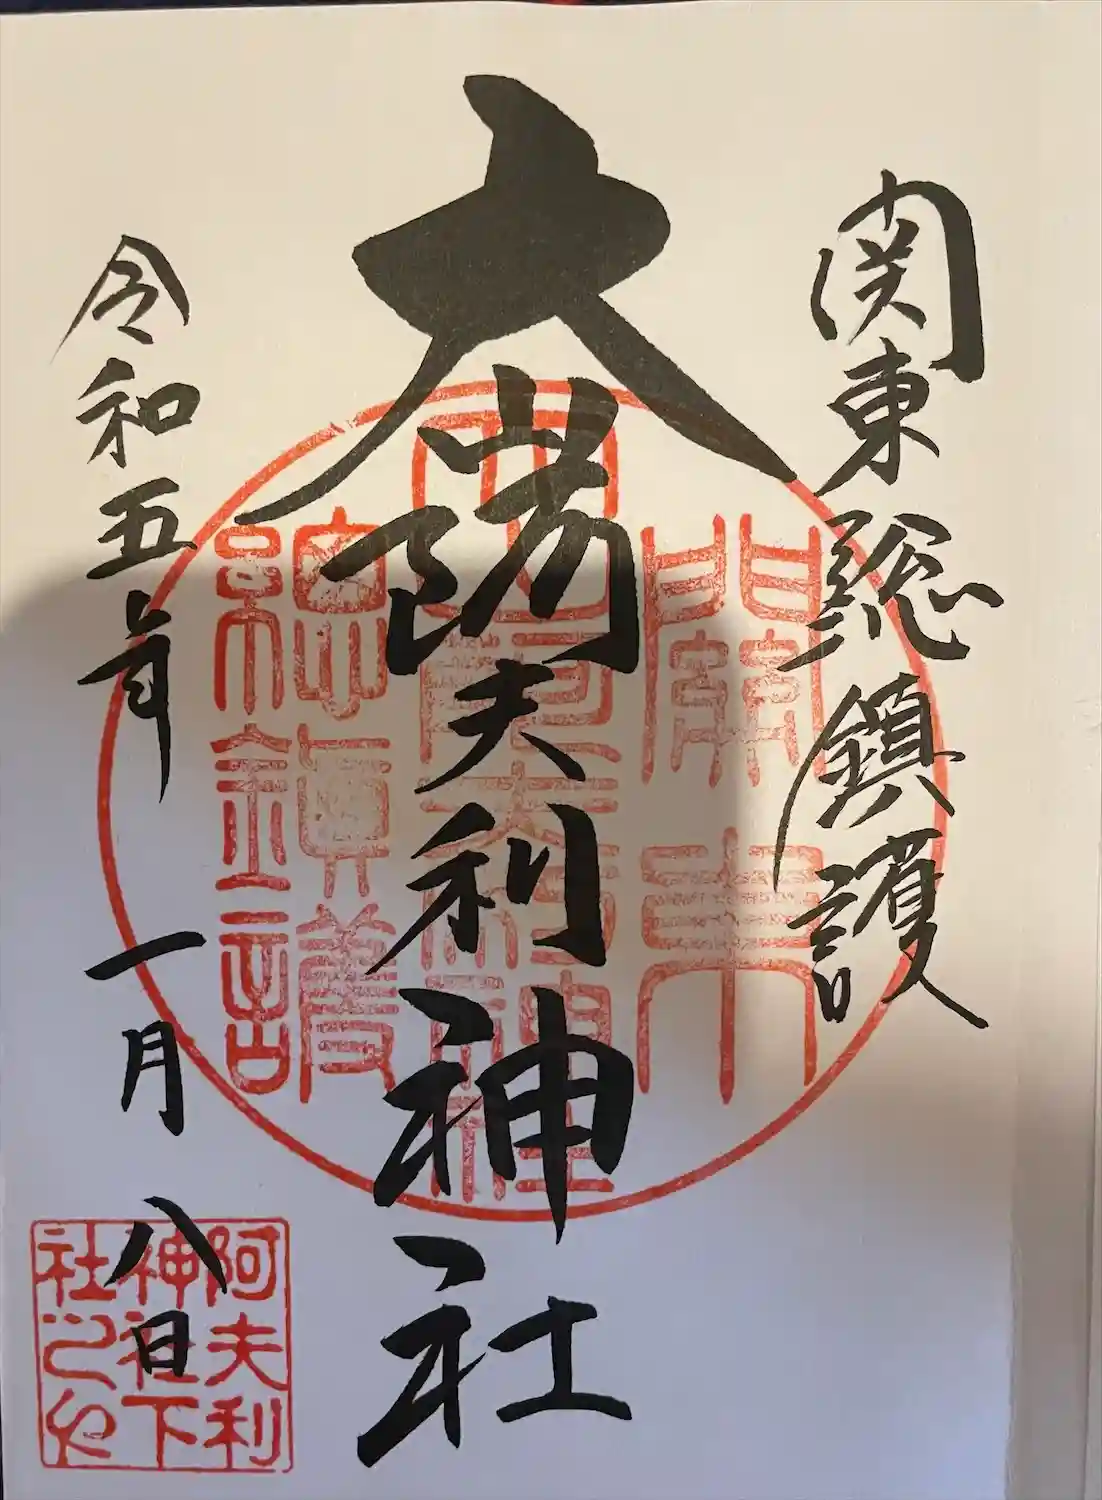 関東総鎮護
大山阿夫利神社
令和五年
一月八日
關東
總鎮護
阿夫利
神社下
社之印